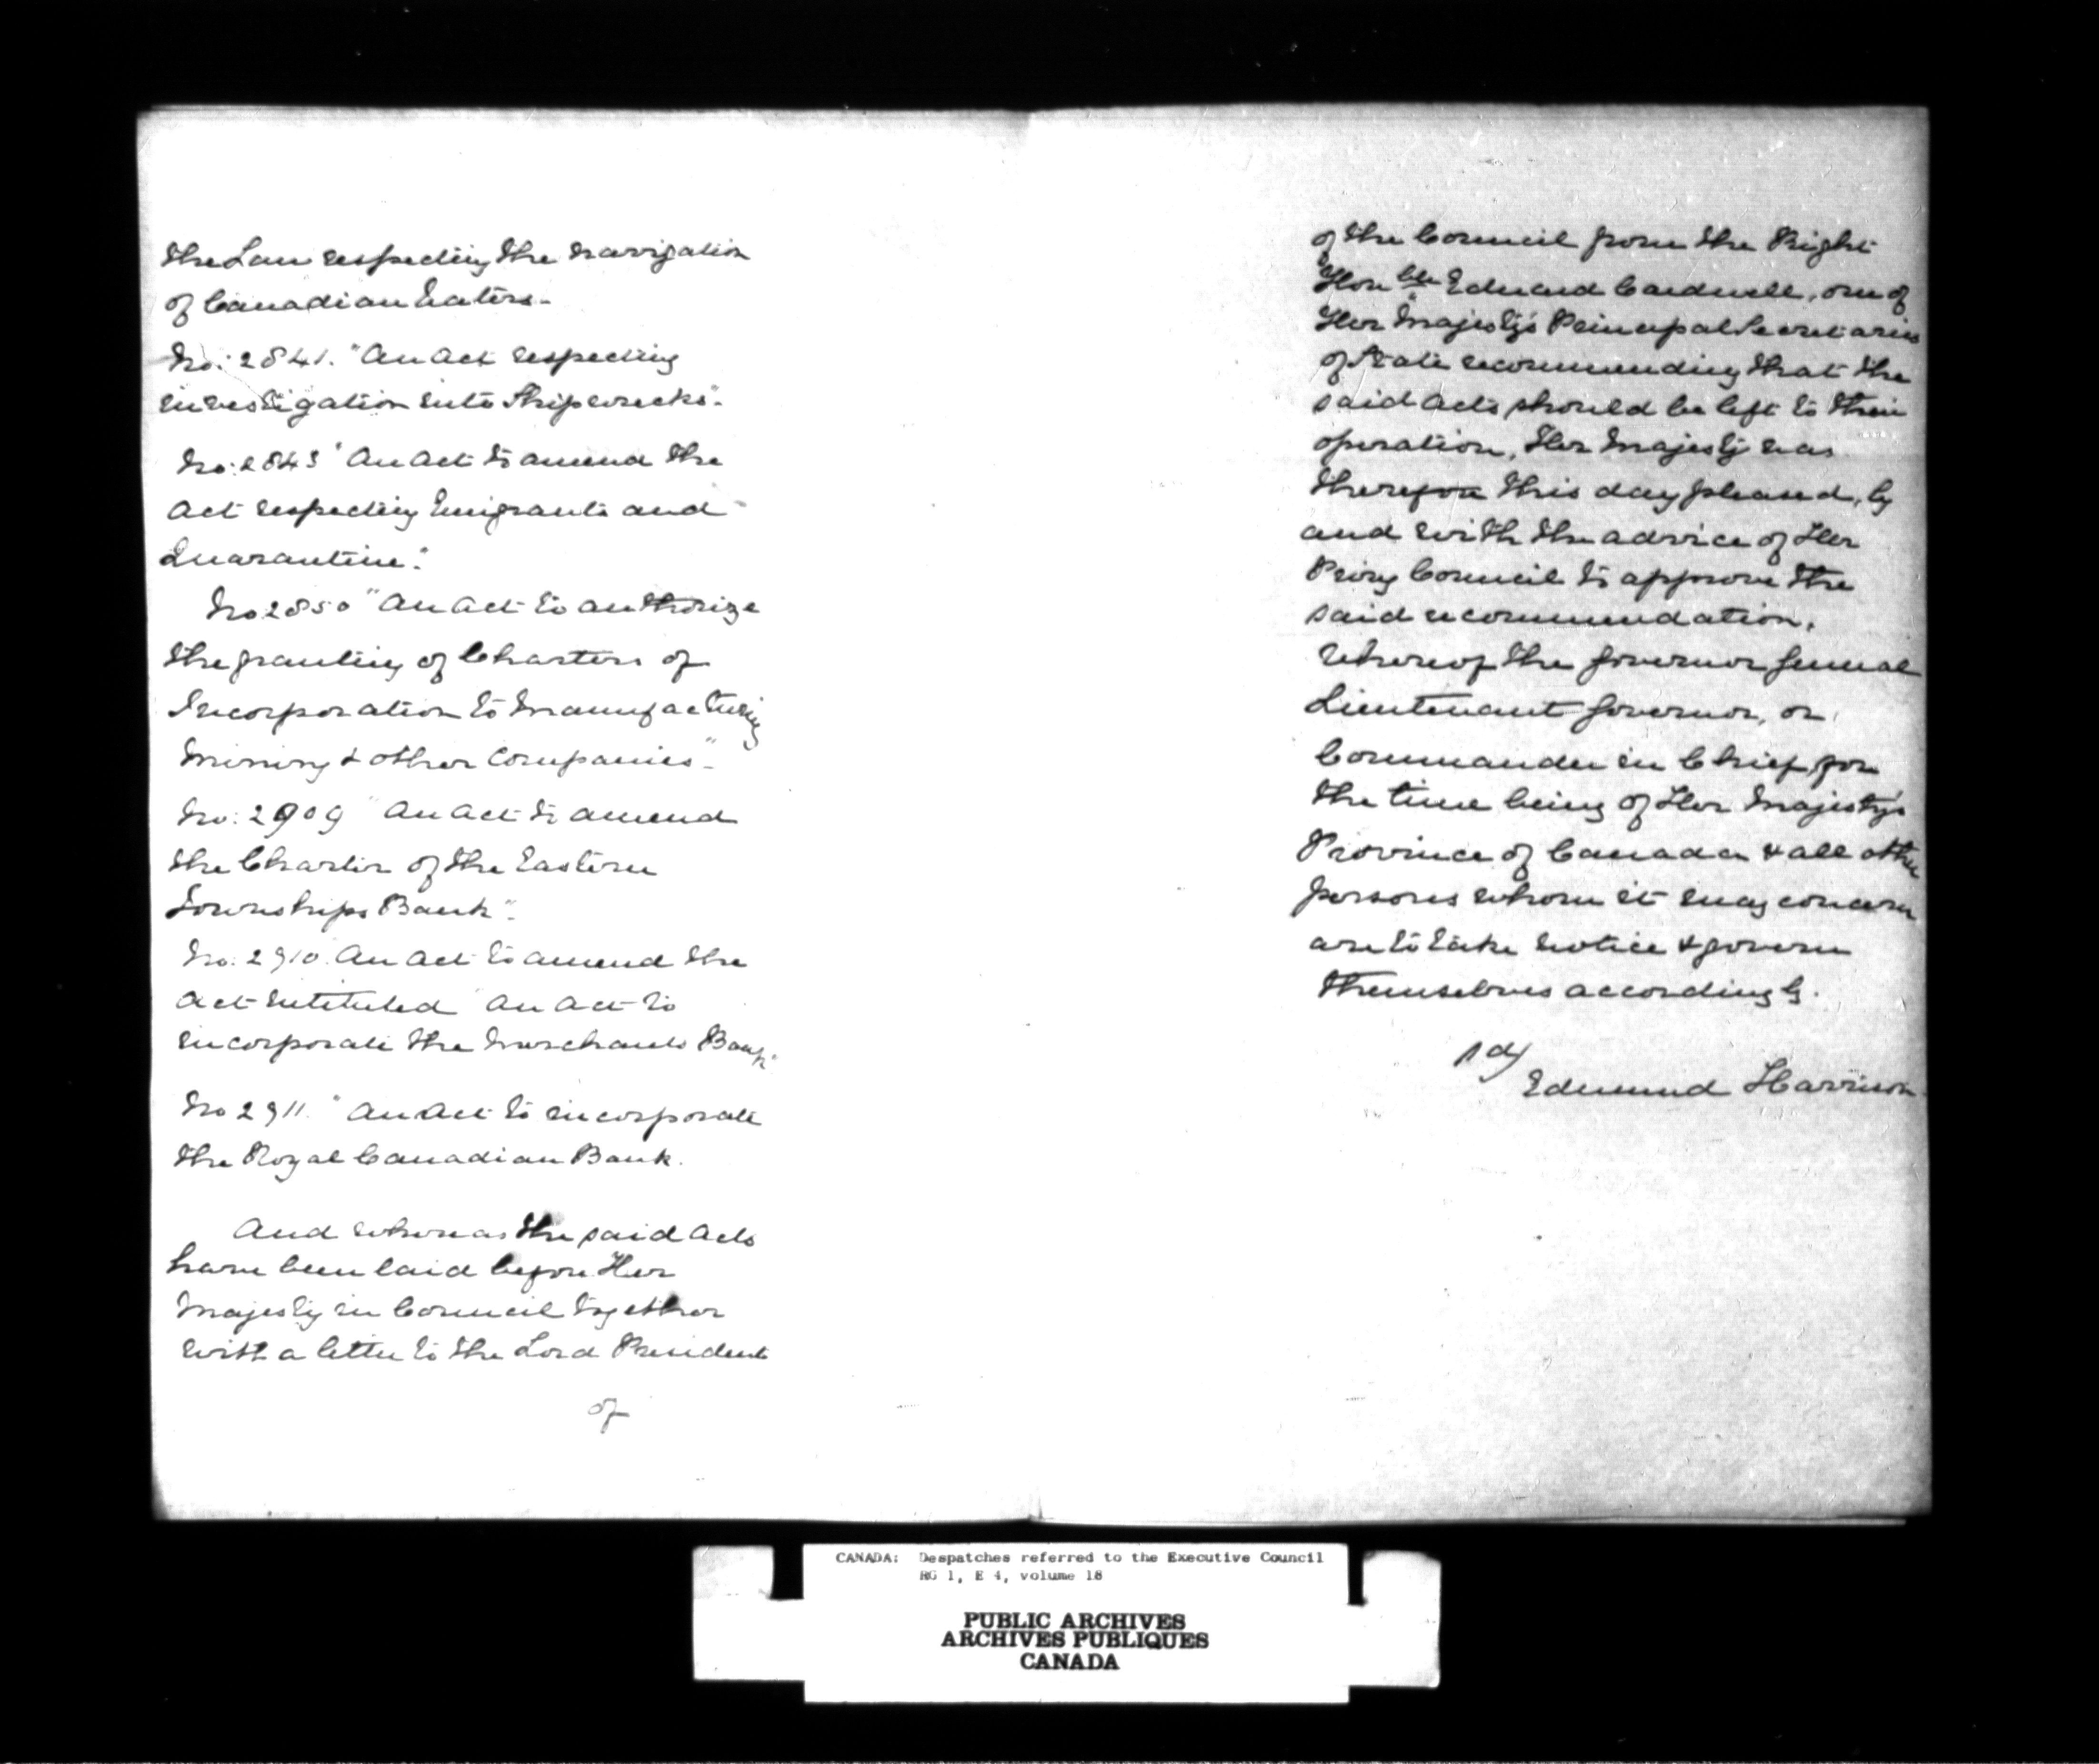 the Law respecting the navigation
of Canadian Waters–
No: 2841. "An Act respecting
investigation into Shipwrecks".
No: 2843 "An Act to amend the
Act respecting Emigrants and
Quarantine".
No 2850 "An Act to authorize
the granting of Charters of
Incorporation to Manufacturing
Mining & other Companies"–
No: 2909 "An Act to amend
the Charter of the Eastern
Townships Bank".
No. 2910. An Act to amend the
Act intituled "An Act to
incorporate the Merchants Bank"
No 2911. "An Act to incorporate
the Royal Canadian Bank.
And whereas the said Acts
have been laid before Her
Majesty in Council together
with a letter to the Lord President
of
of the Council from the Right
Honble Edward Cardwell, one of
Her Majesty's Principal Secretaries
of State recommending that the
said Acts should be left to their
operation, Her Majesty was
therefore this day pleased, by
and with the advice of Her
Privy Council to approve the
said recommendation.
Whereof the Governor General
Lieutenant Governor, or
Commander in Chief for
the time being of Her Majesty's
Province of Canada & all other
persons whom it may concern
are to take notice & govern
themselves accordingly.
sd/
Edmund Harrison
CANADA: Despatches referred to the Executive Council
RG 1, E 4, volume 18
PUBLIC ARCHIVES
ARCHIVES PUBLIQUES
CANADA